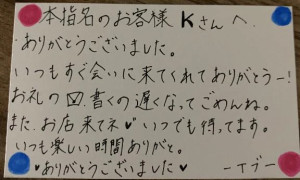 本指名のお客様 Kさんへ
ありがとうございました。
いつもすぐ会いに来てくれてありがとうー!
お礼の〆書くの遅くなってごめんね。
また、お店来てネ♥いつでも待ってます。
いつも楽しい時間ありがと。
♥ありがとうございました♥ ーイブー